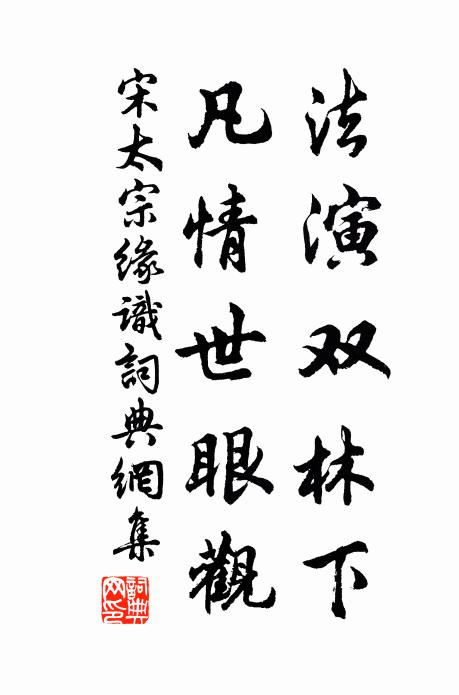 法演双林下
凡情世眼觀
宋太宗緣識詞典網集
詞典网印